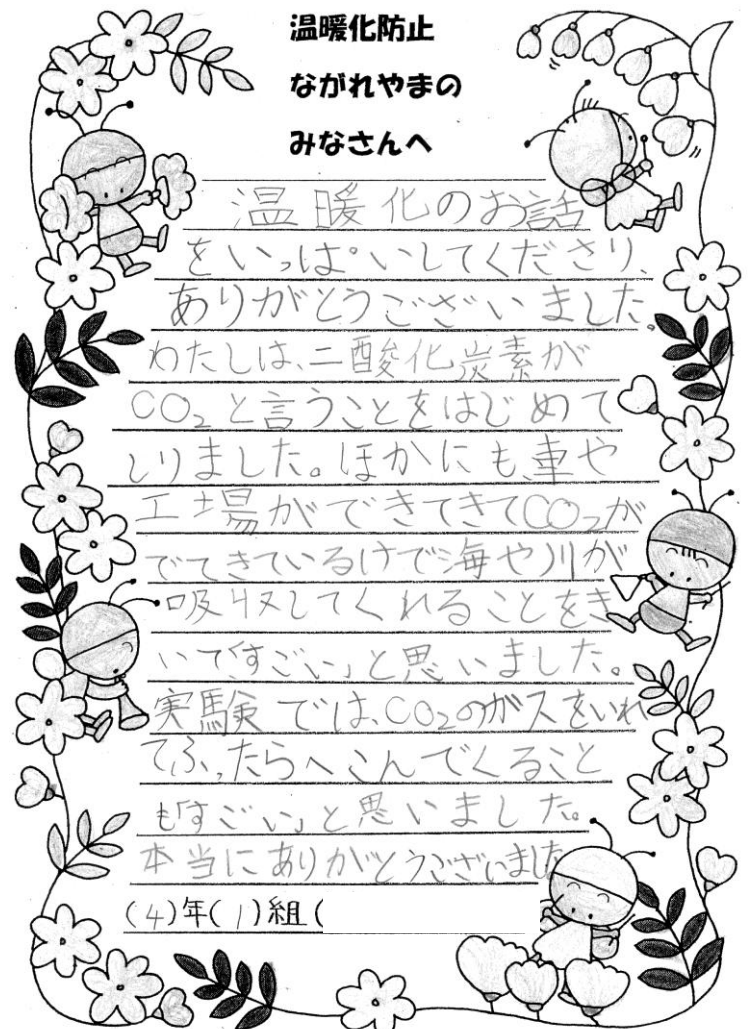 温暖化防止
ながれやまの
みなさんへ
温暖化のお話
をいっぱいしてくださり、
ありがとうございました。
わたしは、二酸化炭素が
CO₂と言うことをはじめて
しりました。ほかにも、車や
工場ができてきてCO₂が
でてきているけで海や川が
吸収してくれることをき
いて「すごい」と思いました。
実験では、CO₂のガスをいれ
てふったらへこんでくること
も「すごい」と思いました。
本当にありがとうございました
(4)年(1)組(